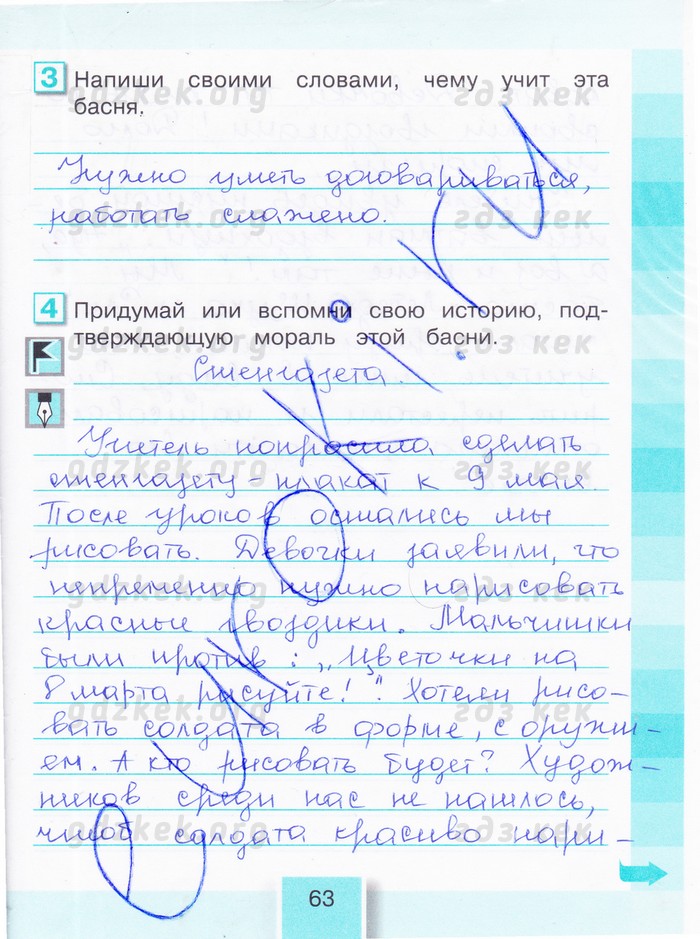 3 Напиши своими словами, чему учит эта
басня.
Нужно уметь договариваться,
работать слажено.
4 Придумай или вспомни свою историю, под-
тверждающую мораль этой басни.
Стенгазета.
Учитель попросила сделать
стенгазету-плакат к 9 мая.
После уроков остались мы
рисовать. Девочки заявили, что
непременно нужно нарисовать
красные гвоздики. Мальчишки
были против: „Цветочки на
8 марта рисуйте!". Хотели рисо-
вать солдата в форме, с оружи-
ем. А кто рисовать будет? Худож-
ников среди нас не нашлось,
чтоб солдата красиво нари-
63
gdzkek.org
гдз кек